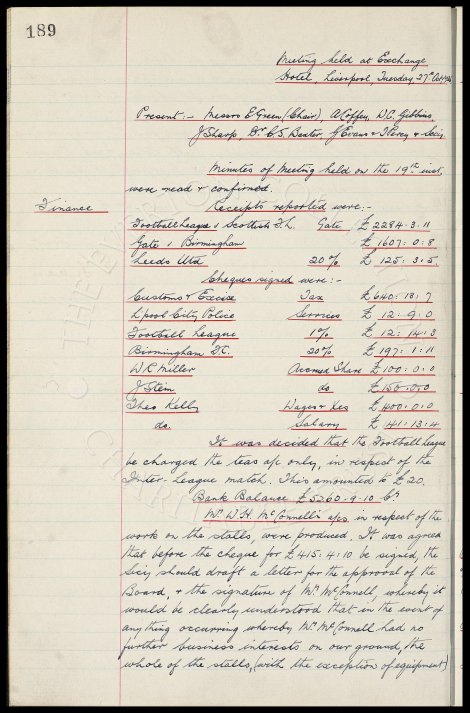 189
Meeting held at Exchange
Hotel, Liverpool, Tuesday, 27th Oct
Present :- Messrs E. Green (Chair), A Coffey, W.C. Gibbins,
J Sharp, Dr C.S. Baxter, J Evans & T Percy & Secy.
Minutes of Meeting held on the 19th inst,
were read & confirmed.
Finance
Receipts reported were:-
Football League v Scottish F.L. Gate £2284:3:11
Gate v Birmingham £1607:0:8
Leeds Utd 20% £125:3:5.
Cheques signed were:-
Customs & Excise Tax £640:18:7
L'pool City Police Services £12:9:0
Football League 1% £12:14:3
Birmingham F.C. 20% £197:1:11
W R Miller Accrued Share £100:0:0
J Stein do £150:0:0
Theo Kelly Wages & Xes £400:0:0
do. Salary £41:13:4
It was decided that the Football League
be charged the teas a/c only, in respect of the
Inter-League match. This amounted to £20.
Bank Balance £5260-9-10 Cr
Mr W.H. McConnell's a/cs in respect of the
work on the stalls, were produced. It was agreed
that before the cheque for £415:4:10 be signed, the
Secy should draft a letter for the approval of the
Board, & the signature of Mr McConnell, whereby it
would be clearly understood that in the event of
anything occurring whereby Mr McConnell had no
further business interests on our ground, the
whole of the stalls, (with the exception of equipment)
THE EVERTON